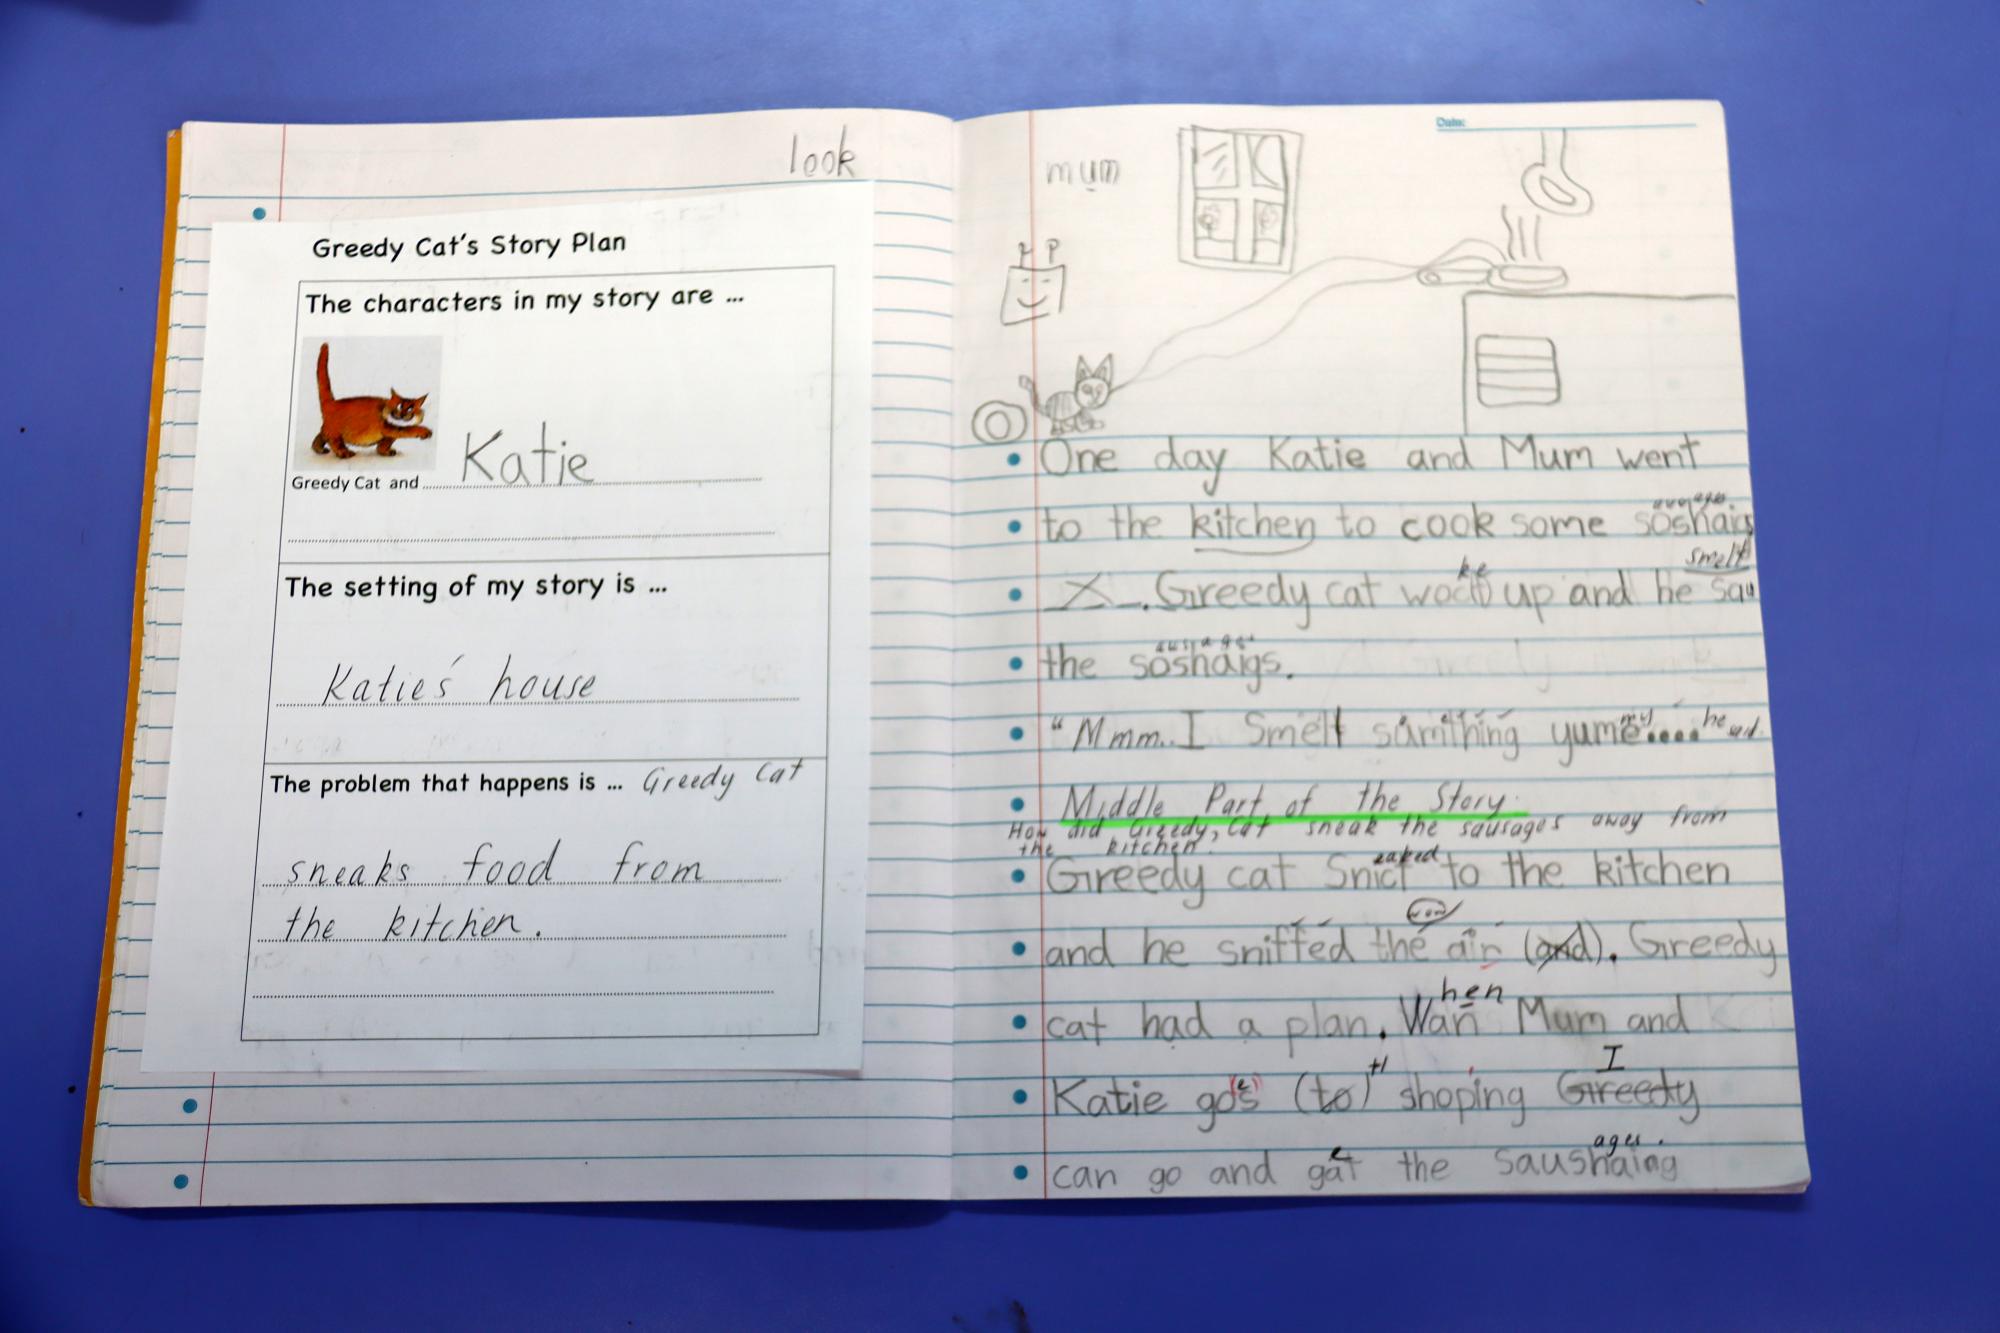 look
Greedy Cat's Story Plan
The characters in my story are ...
Katie
Greedy Cat and
The setting of my story is ...
Katie's house
The problem that happens is ... Greedy Cat
sneaks food from
the kitchen.
Date:
mum
One day Katie and Mum went
ausages
to the kitchen to cook some soshaigs
ke smelt
X . Greedy cat wock up and he saw
ausages
the soshaigs.
my he said.
"Mmm.. I Smelt samthing yume....
Middle Part of the Story.
How did Greedy Cat sneak the sausages away from
the kitchen?
eaked
Greedy cat Snict to the kitchen
and he sniffed the air (and). Greedy
hen
cat had a plan. Wan Mum and
(e) I
Katie gos (to) shoping Greedy
e ages.
can go and gat the saushaing